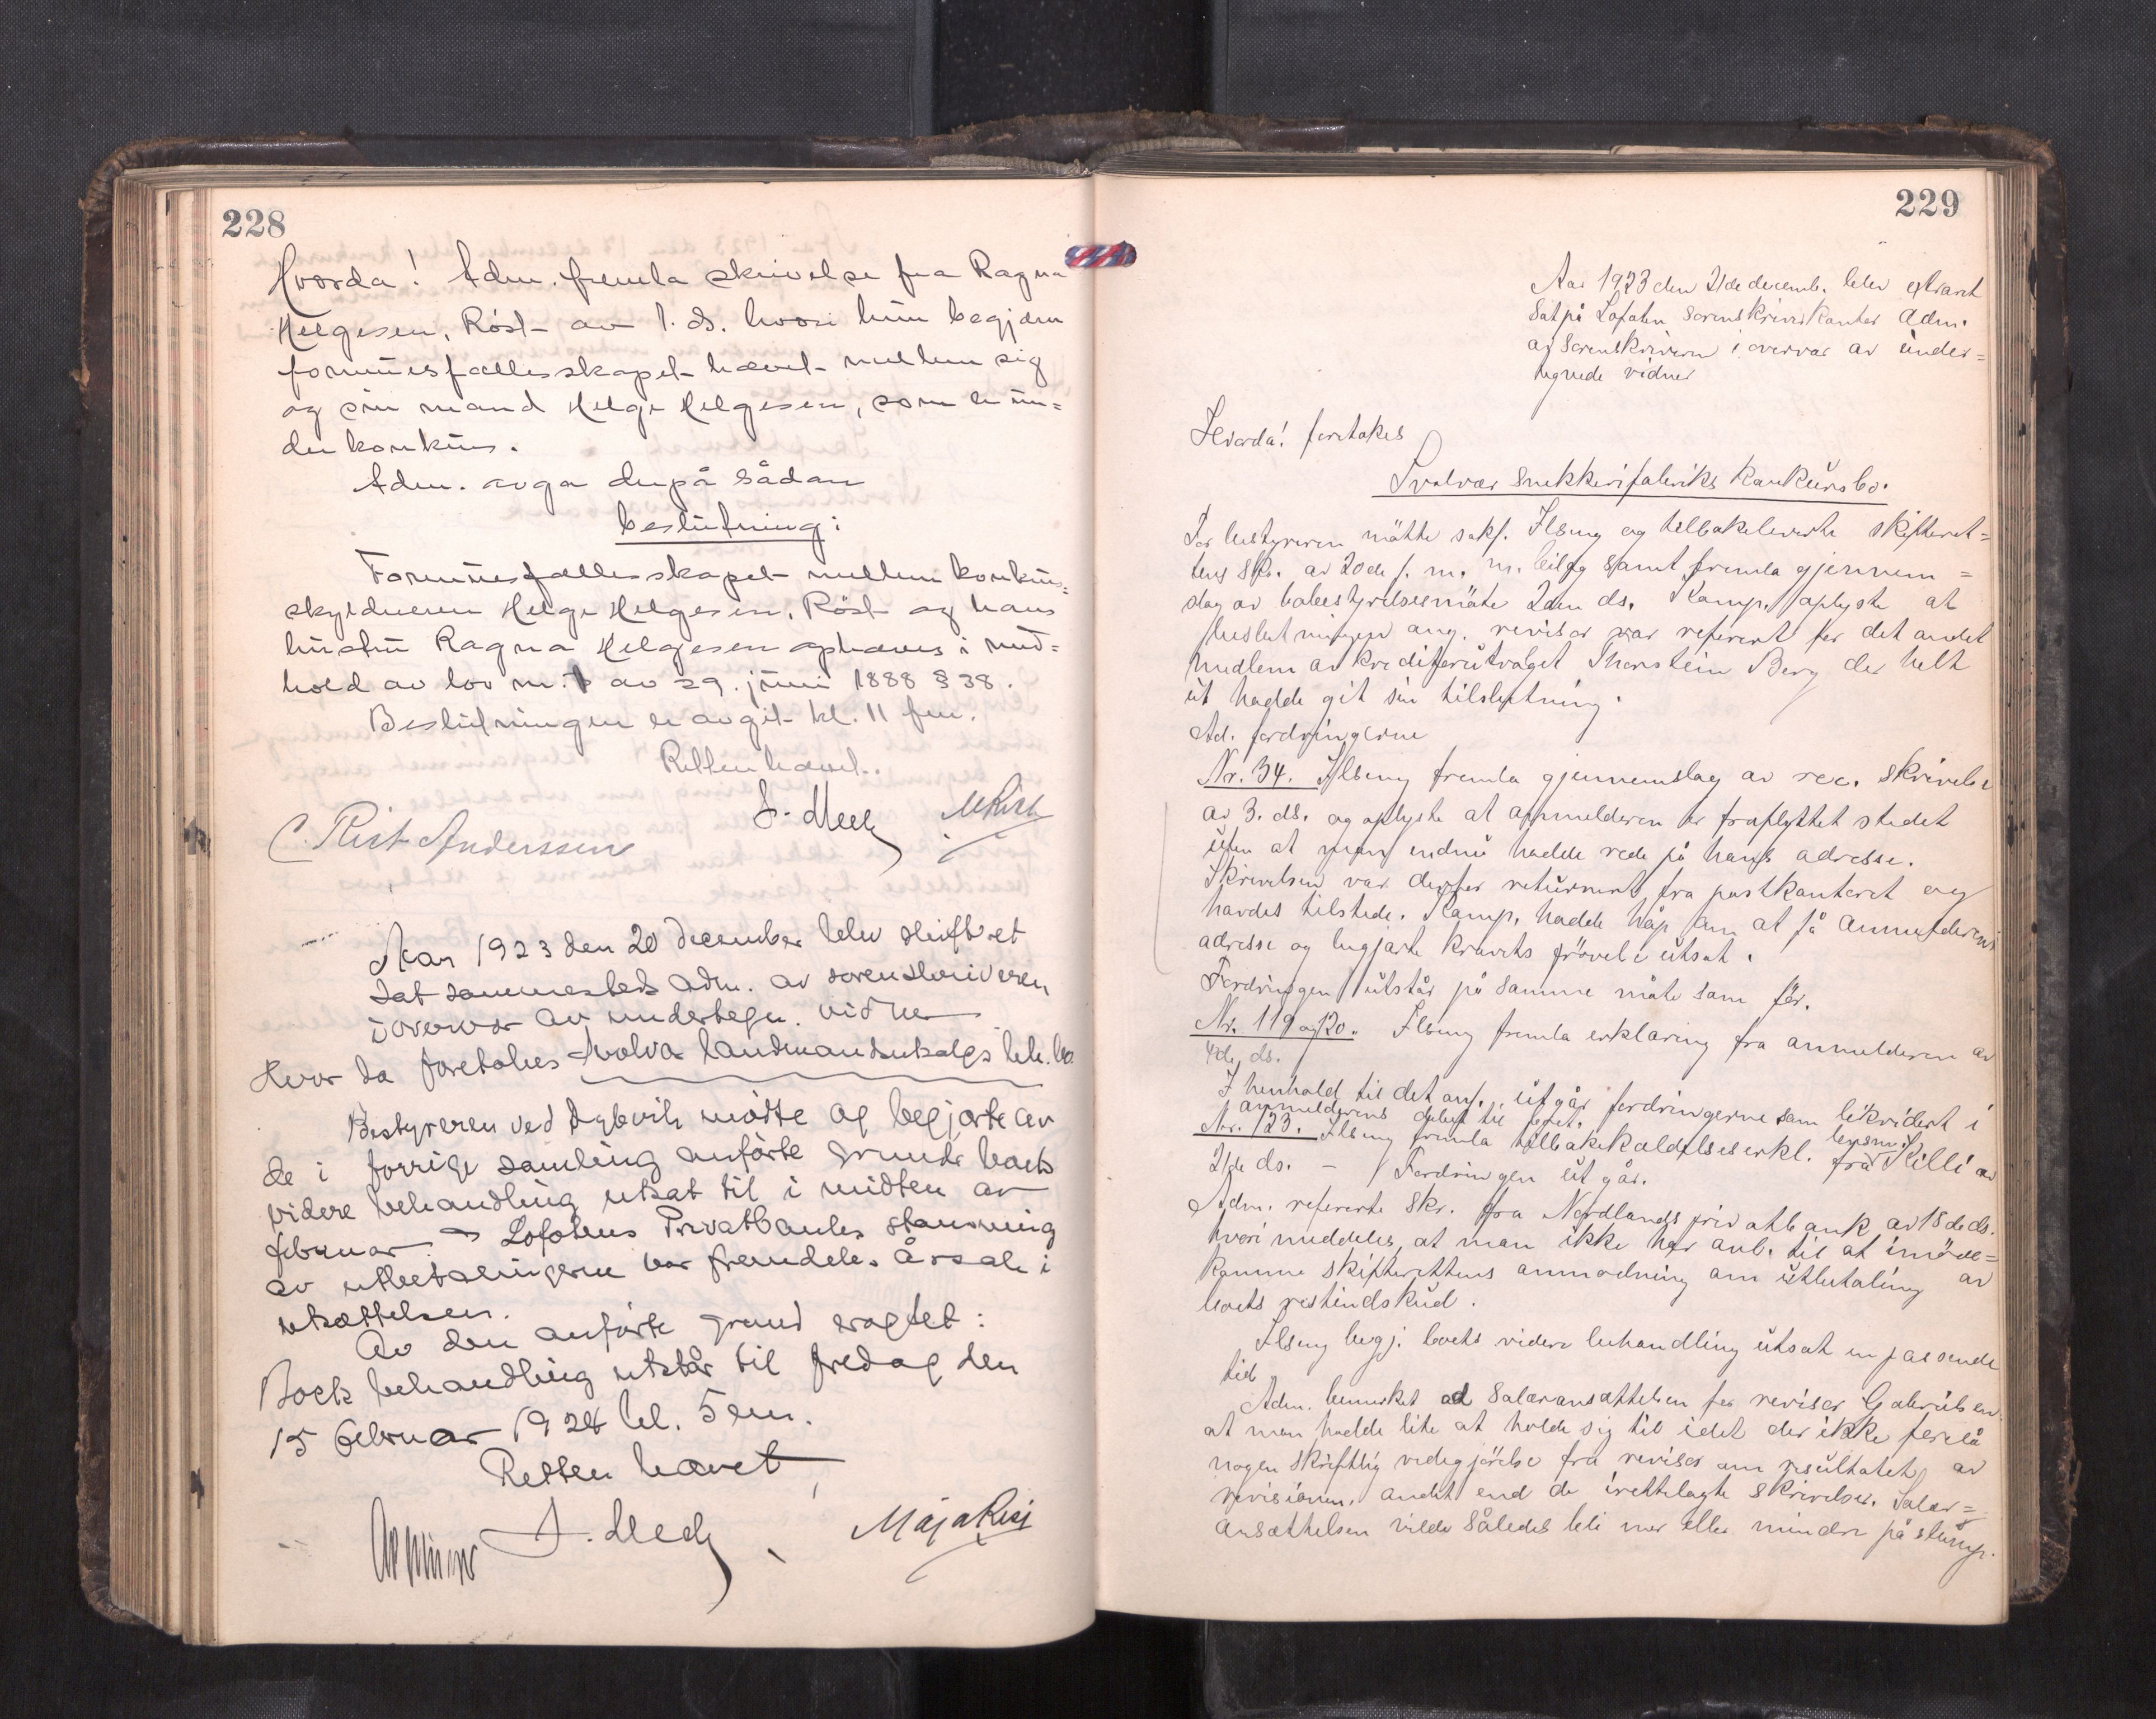 228
Hvorda! Adm. fremla skrivelse fra Ragna
Helgesen, Röst av 1. ds. hvori hun begjærer
formuesfællesskapet hævet mellem sig
og sin mand Helge Helgesen, som er un=
der konkurs.
Adm. avga derpå sådan
beslutning:
Formuesfællesskapet mellem konkurs=
skyldneren Helge Helgesen, Röst og hans
hustru Ragna Helgesen ophæves i med=
hold av lov nr. av 29. juni 1888 § 38.
Beslutningen er avgit kl. 11 fm.
Retten hævet.
C. Rist Anderssen
Aar 1923 den 20 december blev skifteret
sat sammesteds adm. av sorenskriveren
i overvær av undertegn. vidner
Hvor da foretokes Svolvær Landmandsutsalgs kk. bo.
Bestyreren ved Dybvik mötte og begjærte av
de i forrige samling anförte grunde boets
videre behandling utsat til i midten av
februar. Lofotens Privatbanks stansning
av utbetalingerne var fremdeles årsak i
utsættelsen.
Av den anförte grund vragtet:
Boets behandling utstår til fredag den
15 februar 1924 kl. 5 em.
Retten hævet
Maja Rist
229
Aar 1923 den 21de decemb. blev extraret
sat på Lofoten Sorenskriverkontor adm.
av sorenskriveren i overvær av under=
tegnede vidner
Hvorda! foretokes
Svolvær snekkerifabriks konkursbo.
For bestyreren mötte sakf. Ilseng og tilbakeleverte skifteret=
tens skr. av 20de f. m. m. bilag samt fremla gjennem=
slag av bobestyrelsesmöte 2den ds. Komp. oplyste at
beslutningen ang. revisor var referert for det andet
medlem av kreditorutvalget Thorstein Berg der helt
ut hadde git sin tilslutning.
Ad. fordringerne
Nr. 34. Ilseng fremla gjennemslag av rec. skrivelse
av 3. ds. og oplyste at anmelderen er fraflyttet stedet
uten at man endnu hadde rede på hans adresse.
Skrivelsen var derfor returnert fra postkontoret og
havdes tilstede. Komp. hadde håp om at få anmelderens
adresse og begjærte kravets prövelse utsat.
Fordringen utstår på samme måte som för.
Nr. 119 og 120. Ilseng fremla erklæring fra anmelderen av
4de ds.
I henhold til det anf. utgår fordringerne som likvidert i
anmelderens debet til boet.
Nr. 123. Ilseng fremla tilbakekaldelseserkl. fra lensm. Killi av
21de ds. – Fordringen utgår.
Adm. refererte skr. fra Nordlands privatbank av 18de ds.
hvori meddeles, at man ikke har anl. til at imöte=
komme skifterettens anmodning om utbetaling av
boets restindskud.
Ilseng begj. boets videre behandling utsat en passende
tid
Adm. bemerket ad salæransættelsen for revisor Gabrielsen
at man hadde lite at holde sig til idet der ikke forelå
nogen skriftlig redegjörelse fra revisor om resultatet av
revisionen, andet end de irettelagte skrivelser. Salær=
ansættelsen vilde således bli mer eller mindre på slump.